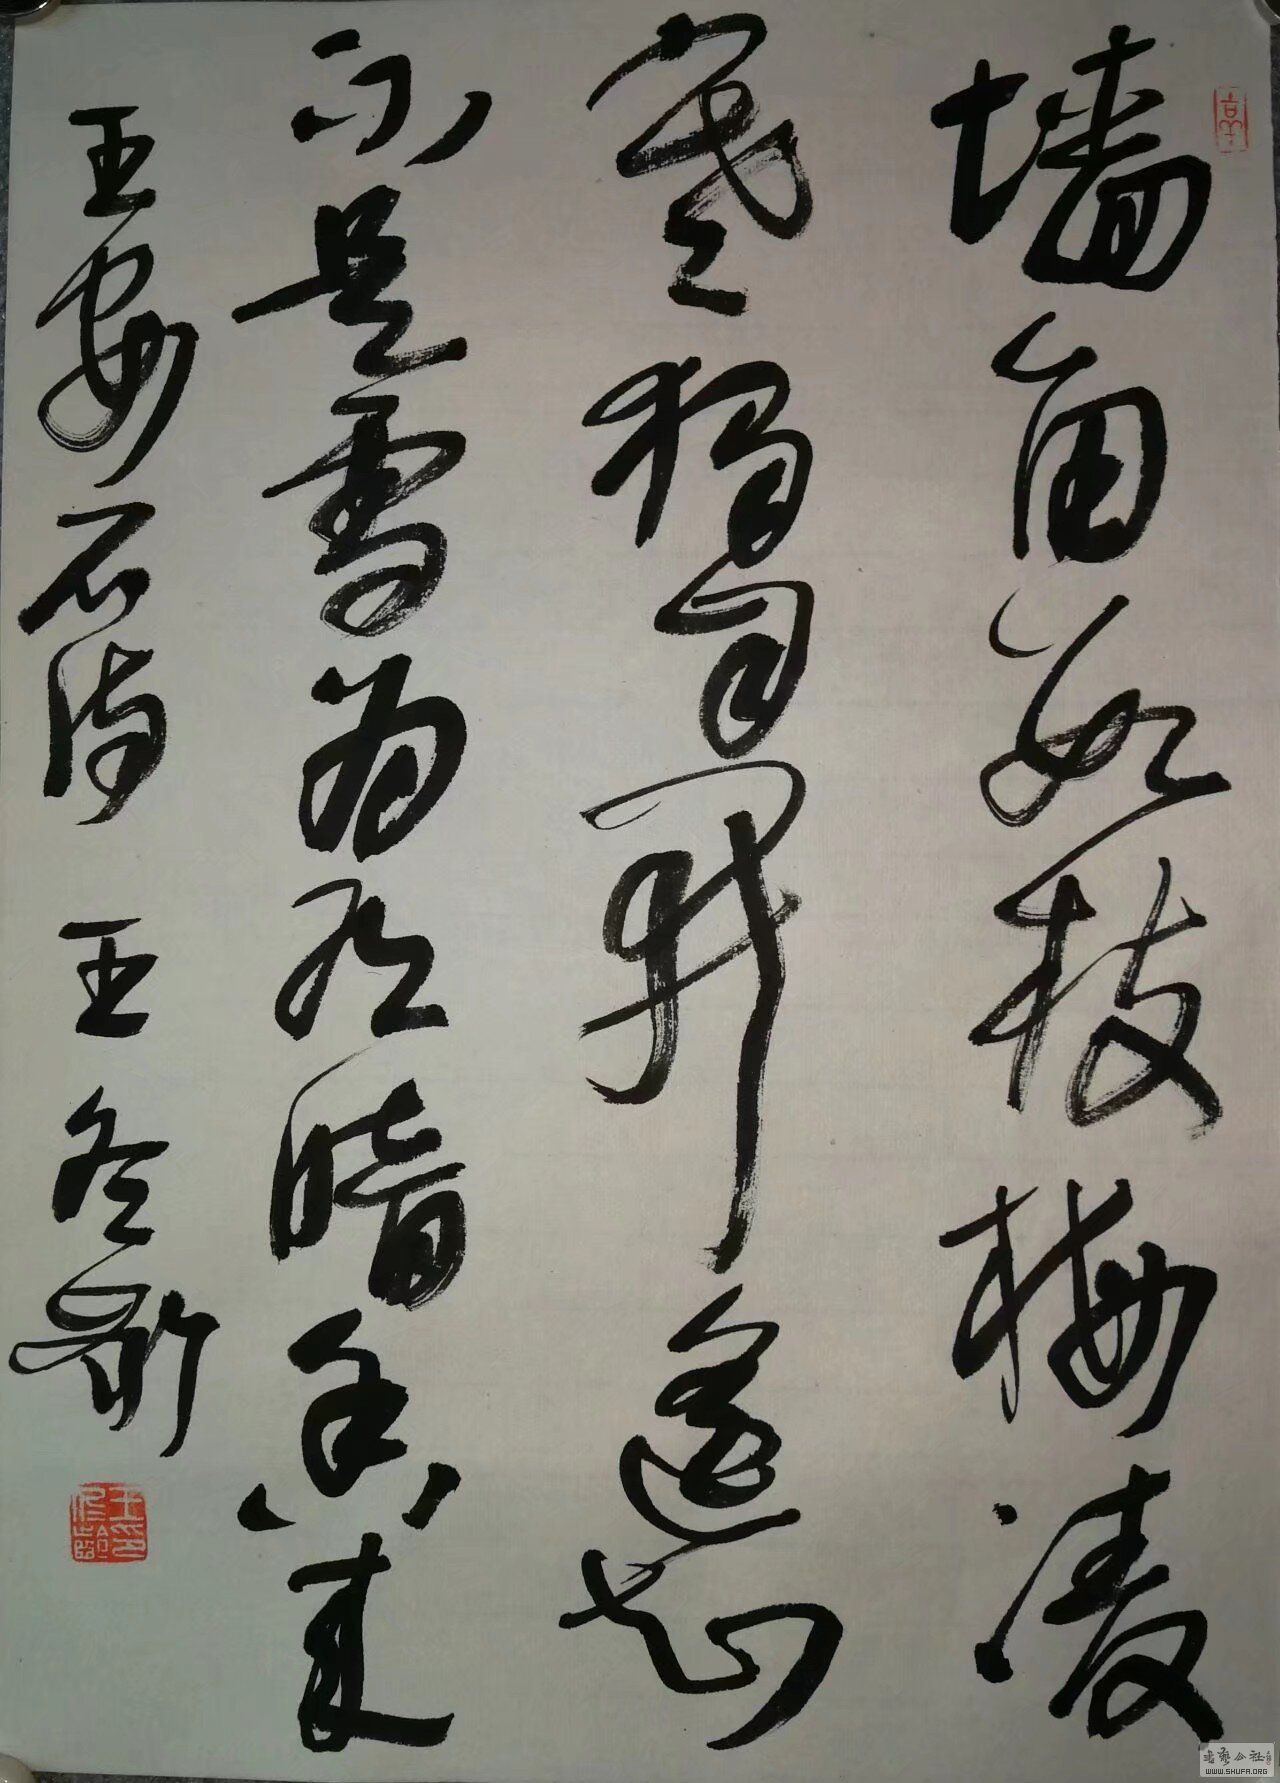 墙角数枝梅凌
寒独自开遥知
不是雪为有暗香来
王安石诗 王冬龄
书艺公社
WWW.SHUFA.ORG